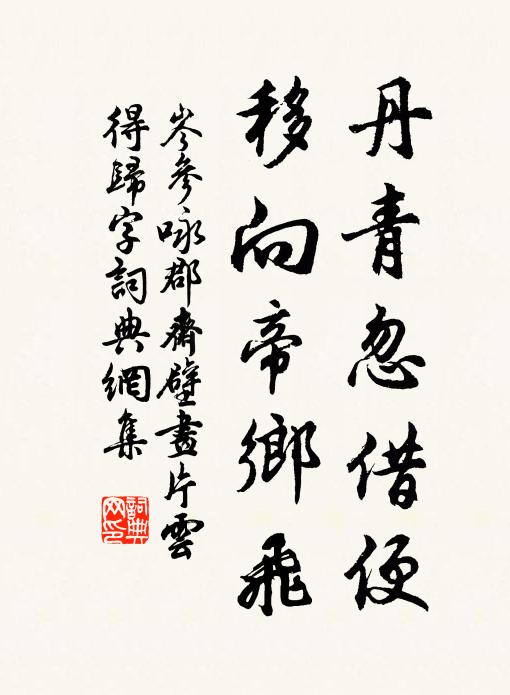 丹青忽借便
移向帝鄉飛
岑參咏郡齋壁畫片雲
得歸字詞典網集
詞典
网印